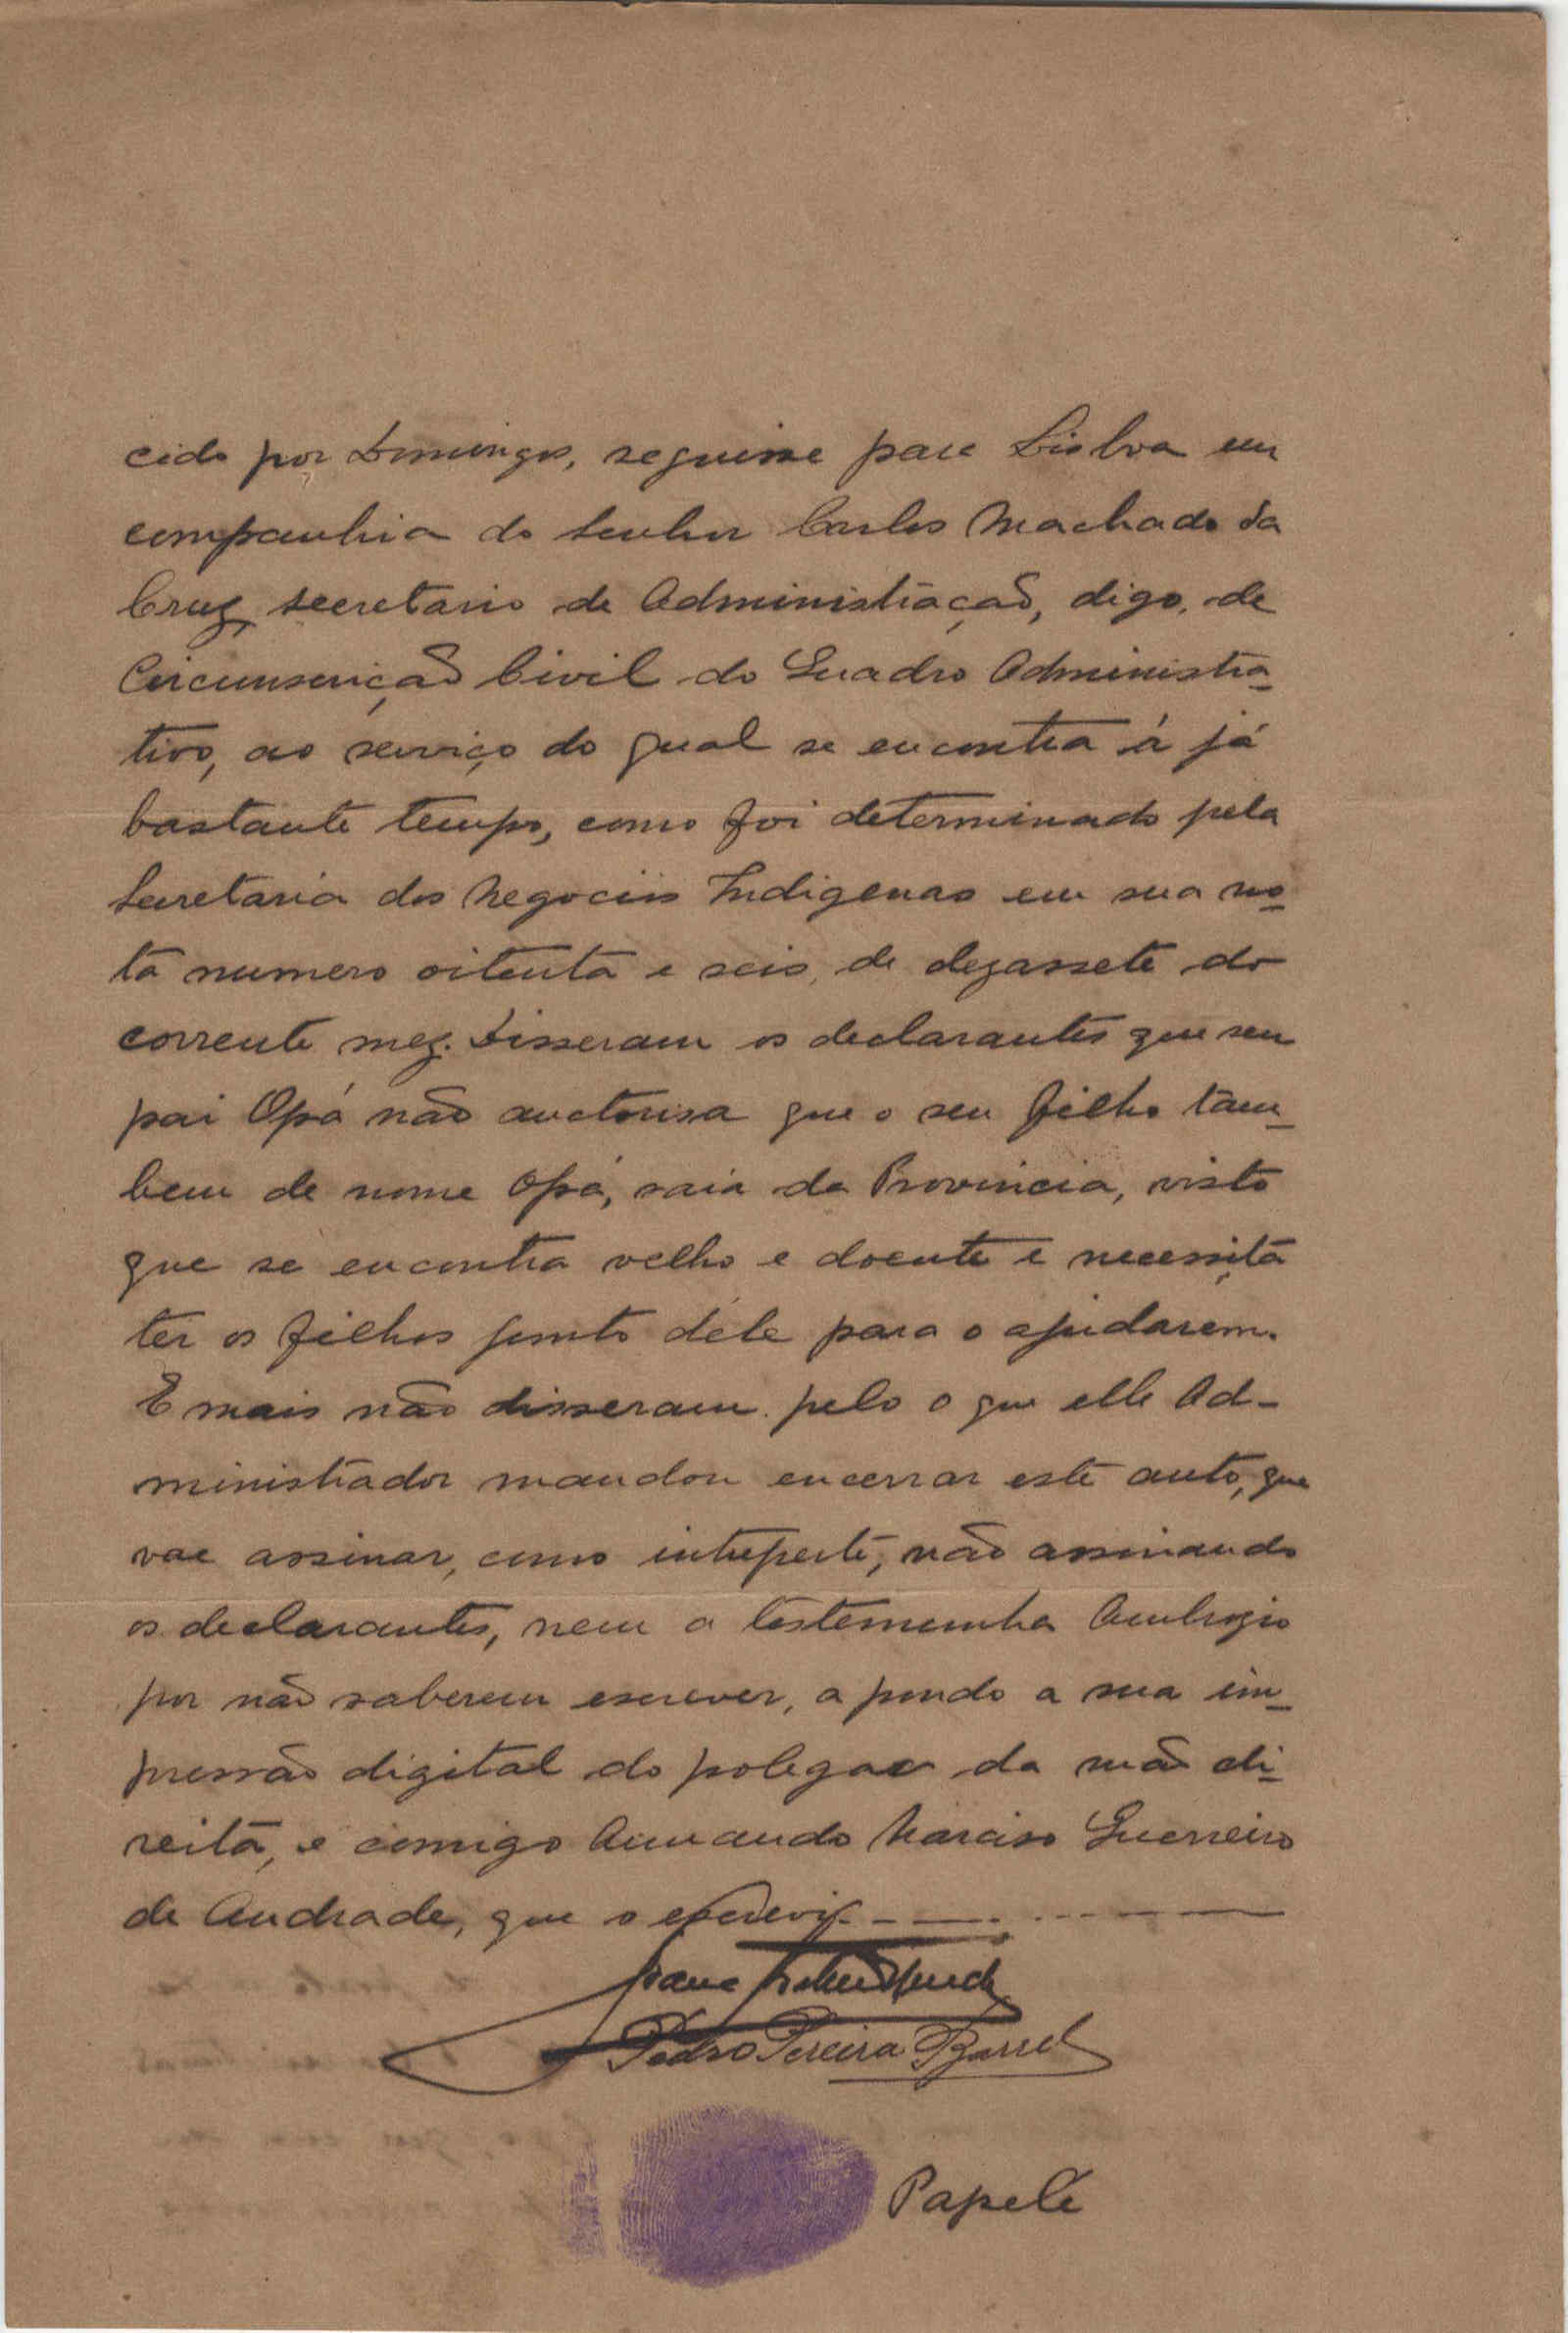 cido por Domingos, seguisse para Lisboa em
companhia do Senhor Carlos Machado da
Cruz, secretario de Administração, digo, de
Circunscrição Civil do Quadro Administra-
tivo, ao serviço do qual se encontra á já
bastante tempo, como foi determinado pela
Secretaria dos Negocios Indigenas em sua no-
ta numero oitenta e seis, de dezassete do
corrente mez. Disseram os declarantes que seu
pai Opá não auctorisa que o seu filho tam-
bem de nome Opá, saia da Provincia, visto
que se encontra velho e doente e necessita
ter os filhos junto déle para o ajudarem.
E mais não disseram pelo o que elle Ad-
ministrador mandou encerrar este auto, que
vae assinar, como interpete, não assinando
os declarantes, nem a testemunha Ambrozio
por não saberem escrever, a pondo a sua im-
pressão digital do polegar da mão di-
reita, e comigo Armando Narciso Guerreiro
de Andrade, que o escrevi.
Pedro Pereira Barre
Papelé